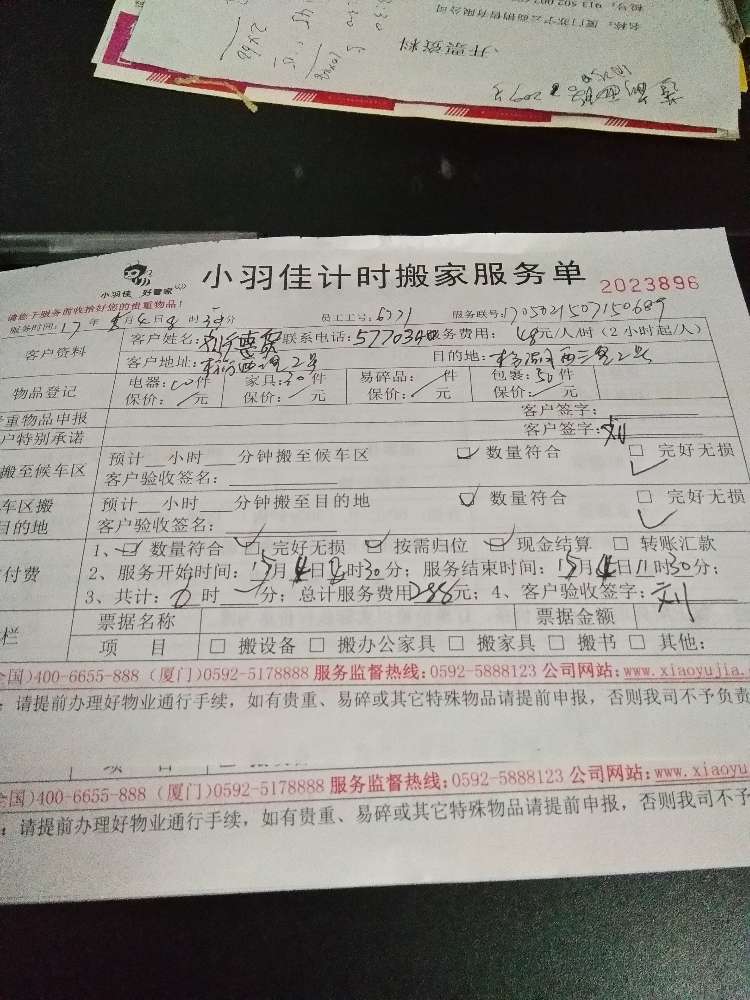 开票资料
小羽佳 好管家
小羽佳计时搬家服务单
2023896
请您于服务前收拾好您的贵重物品！
服务时间：17年 月4日8时30分 员工工号： 服务联号：1705021507150689
客户资料
客户姓名： 联系电话：5770340 服务费用：48元/人/时（2小时起/人）
客户地址： 2号 目的地： 2号
物品登记
电器：10件 家具：30件 易碎品： 件 包装：50件
保价： 元 保价： 元 保价： 元 保价： 元
重物品申报 客户签字：
户特别承诺 客户签字：刘
搬至候车区
预计 小时 分钟搬至候车区 ☑ 数量符合 □ 完好无损
客户验收签名：
车区搬
目的地
预计 小时 分钟搬至目的地 ☑ 数量符合 □ 完好无损
客户验收签名：
付费
1、☑ 数量符合 ☑ 完好无损 ☑ 按需归位 ☑ 现金结算 □ 转账汇款
2、服务开始时间： 月4日 时30分；服务结束时间： 月4日11时30分；
3、共计： 时 分；总计服务费用288元；4、客户验收签字：刘
栏
票据名称 票据金额
项 目 □ 搬设备 □ 搬办公家具 □ 搬家具 □ 搬书 □ 其他：
全国)400-6655-888 (厦门)0592-5178888 服务监督热线：0592-5888123 公司网站：www.xiaoyujia.
：请提前办理好物业通行手续，如有贵重、易碎或其它特殊物品请提前申报，否则我司不予负责
全国)400-6655-888 (厦门)0592-5178888 服务监督热线：0592-5888123 公司网站：www.xiaoyu
：请提前办理好物业通行手续，如有贵重、易碎或其它特殊物品请提前申报，否则我司不予